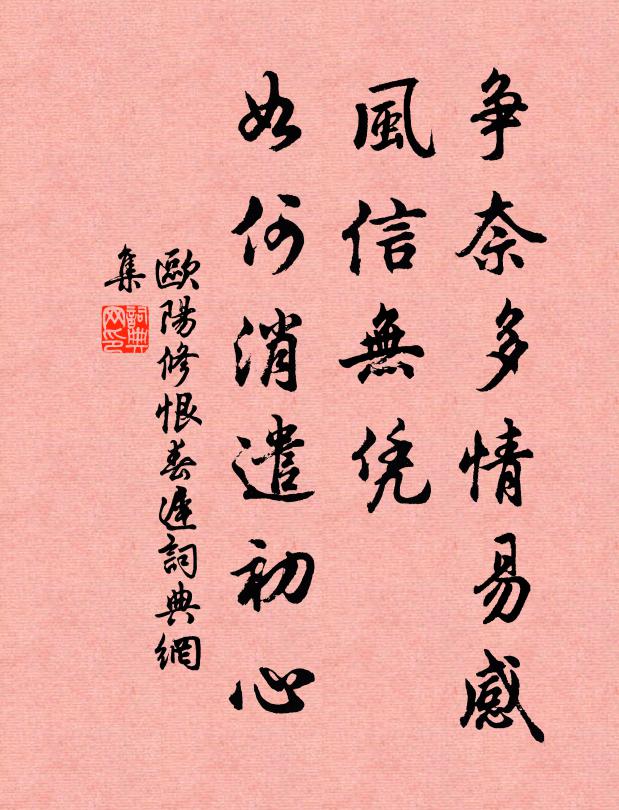 争奈多情易感
風信無凭
如何消遣初心
歐陽修恨春遲詞典網
集
詞典
网印